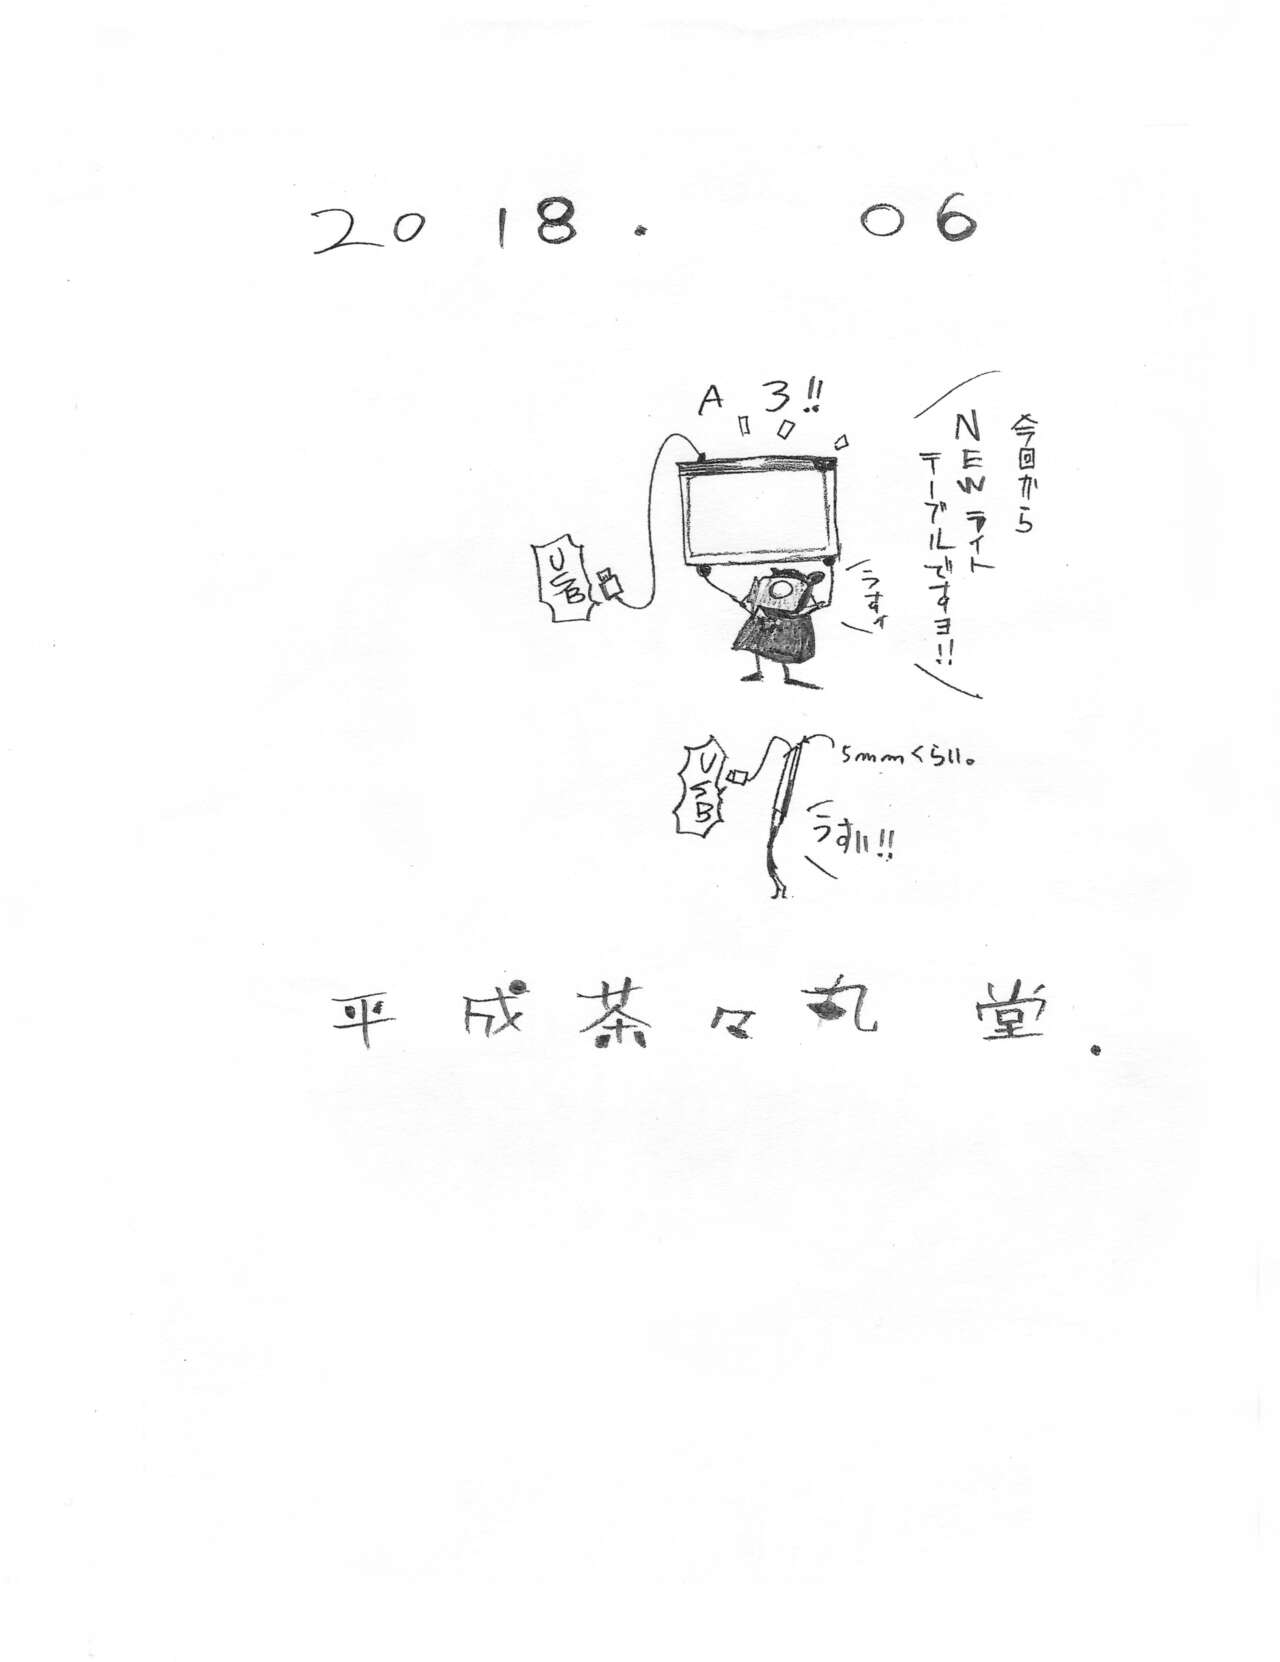 2018. 06
A3!!
今回から
NEWライト
テーブルですヨ!!
USB
うすッ
USB
5mmくらい。
うすい!!
平成茶々丸堂.